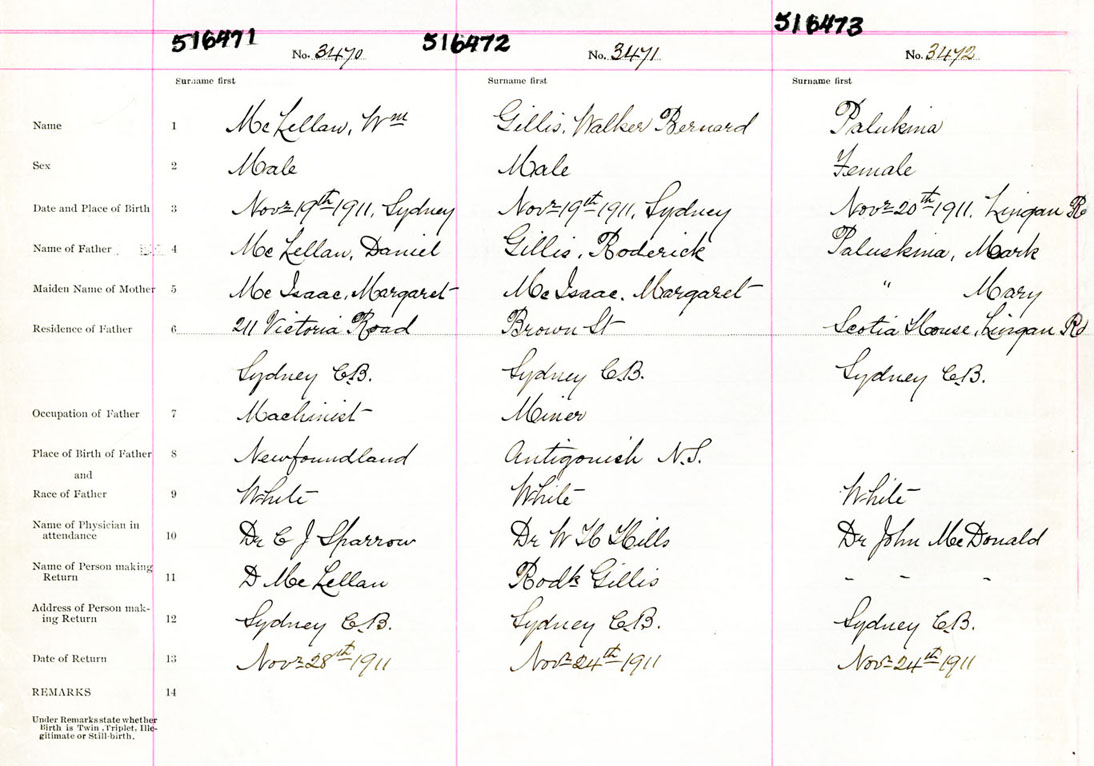 516471 516472 516473
No. 3470 No. 3471 No. 3472
Surname first Surname first Surname first
Name 1 McLellan, Wm Gillis, Walker Bernard Palukina
Sex 2 Male Male Female
Date and Place of Birth 3 Novr 19th 1911, Sydney Novr 19th 1911, Sydney Novr 20th 1911, Lingan R
Name of Father 4 McLellan, Daniel Gillis, Roderick Paluskina, Mark
Maiden Name of Mother 5 McIsaac, Margaret McIsaac, Margaret " Mary
Residence of Father 6 211 Victoria Road Brown St Scotia House, Lingan Rd
Sydney C.B. Sydney C.B. Sydney C.B.
Occupation of Father 7 Machinist Miner
Place of Birth of Father 8 Newfoundland Antigonish N.S.
and
Race of Father 9 White White White
Name of Physician in
attendance 10 Dr C J Sparrow Dr W H Hills Dr John McDonald
Name of Person making
Return 11 D McLellan Rodk Gillis - - -
Address of Person mak-
ing Return 12 Sydney C.B. Sydney C.B. Sydney C.B.
Date of Return 13 Novr 28th 1911 Novr 24th 1911 Novr 24th 1911
REMARKS 14
Under Remarks state whether
Birth is Twin, Triplet, Ille-
gitimate or Still-birth.